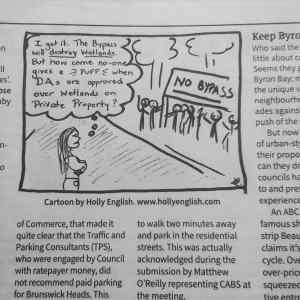 I get it. The Bypass
will destroy Wetlands.
But how come no-one
gives a PUFF when
DAs are approved
over Wetlands on
Private Property?
NO BYPASS
Cartoon by Holly English. www.hollyenglish.com
of Commerce, that made it
quite clear that the Traffic and
Parking Consultants (TPS),
who were engaged by Council
with ratepayer money, did
not recommend paid parking
for Brunswick Heads. This
to walk two minutes away
and park in the residential
streets. This was actually
acknowledged during the
submission by Matthew
O'Reilly representing CABS at
the meeting.
Keep Byro
Who said the
little about c
Seems they
Byron Bay;
the unique v
neighbourh
ades against
push of the
But now
of urban-sty
their propo
can they do
councils ha
to and pres
experience
An ABC
famous sh
strip Beau
claims it's
cycle. Ove
over-prop
squeezed